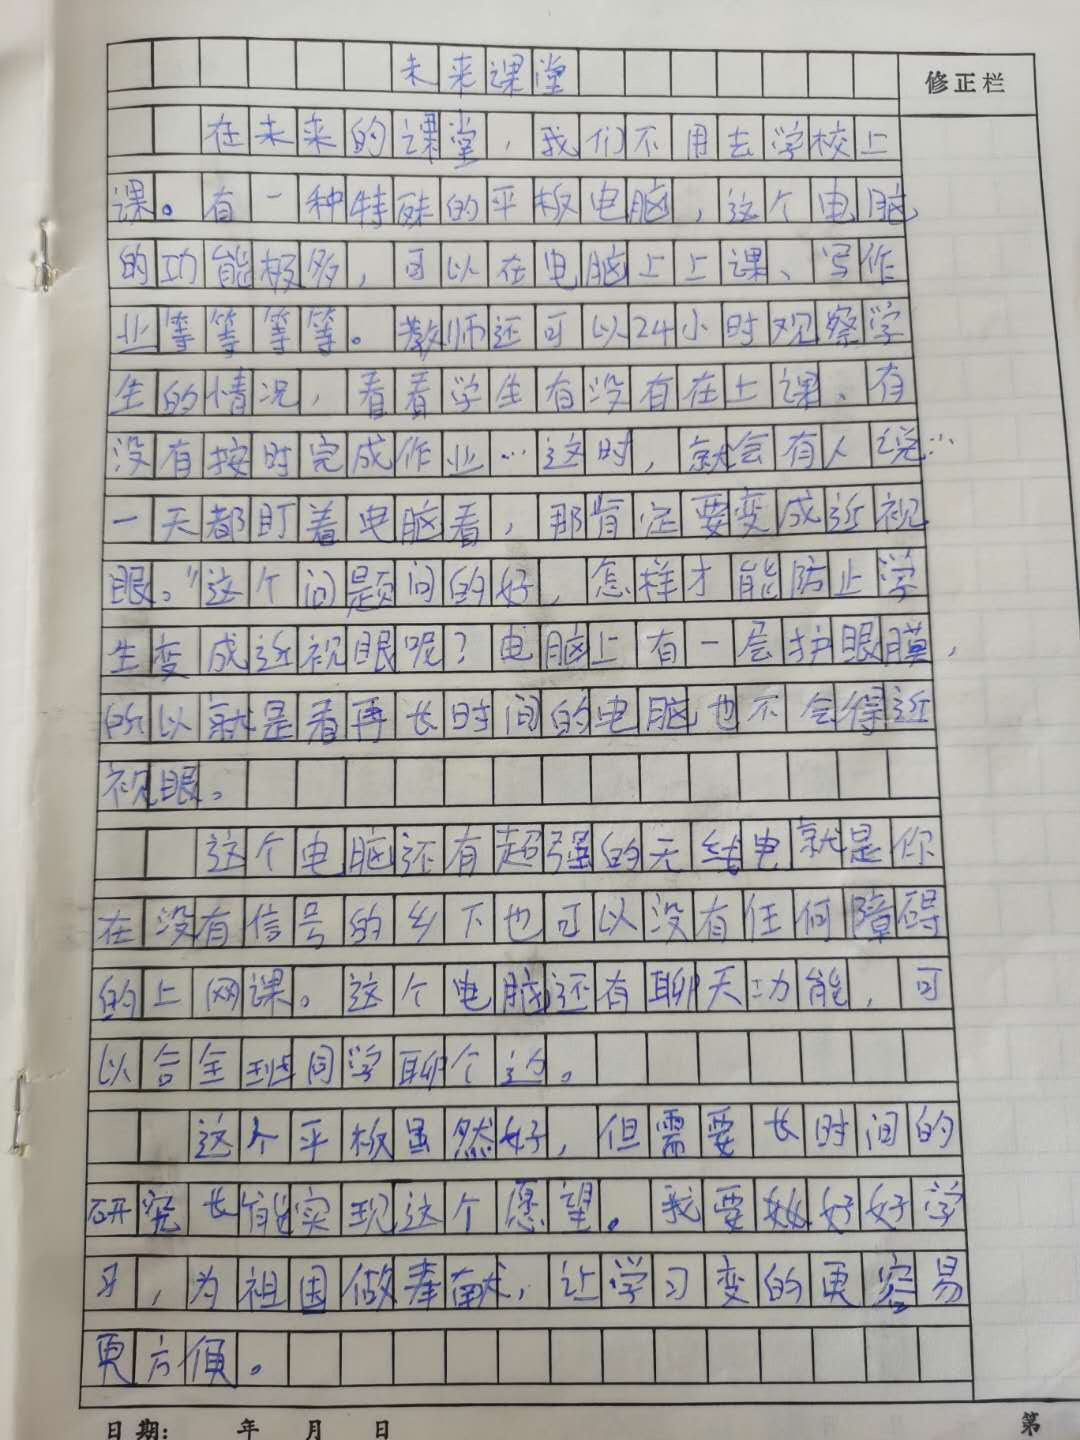 未来课堂
修正栏
在未来的课堂，我们不用去学校上
课。有一种特殊的平板电脑，这个电脑
的功能极多，可以在电脑上上课、写作
业等等等等。教师还可以24小时观察学
生的情况，看看学生有没有在上课、有
没有按时完成作业…这时，就会有人说：“
一天都盯着电脑看，那肯定要变成近视
眼。”这个问题问的好，怎样才能防止学
生变成近视眼呢？电脑上有一层护眼膜，
所以就是看再长时间的电脑也不会得近
视眼。
这个电脑还有超强的无线电就是你
在没有信号的乡下也可以没有任何障碍
的上网课。这个电脑还有聊天功能，可
以合全班同学聊个边。
这个平板虽然好，但需要长时间的
研究长能实现这个愿望。我要好好学
习，为祖国做奉献，让学习变的更容易
更方便。
日期： 年 月 日
第